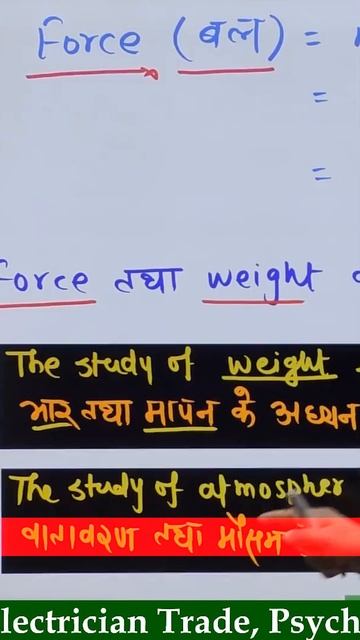 Force (बल) =
=
=
Force तथा weight
The study of weight
भार तथा मापन के अध्यन
The study of atmospher
वातावरण तथा मौसम
lectrician Trade, Psych